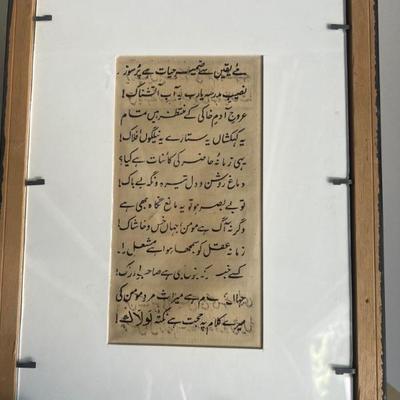 مئے یقیں سے ضمیرِ حیات ہے پُرسوز
نصیبِ مدرسہ یارب یہ آبِ آتشناک!
عروجِ آدمِ خاکی کے منتظر ہیں تمام
یہ کہکشاں یہ ستارے یہ نیلگوں افلاک!
یہی زمانۂ حاضر کی کائنات ہے کیا؟
دماغ روشن و دل تیرہ و نگہ بے باک!
تو بے بصر ہو تو یہ مانعِ نگاہ بھی ہے
وگرنہ آگ ہے مومن جہاں خس و خاشاک!
زمانہ عقل کو سمجھا ہوا ہے مشعل
کسے کہ جنوں بھی ہے صاحب
جہاں تمام ہے میراث مردِ مومن کی
میرے کلام پہ حجت ہے نکتۂ لولاک!